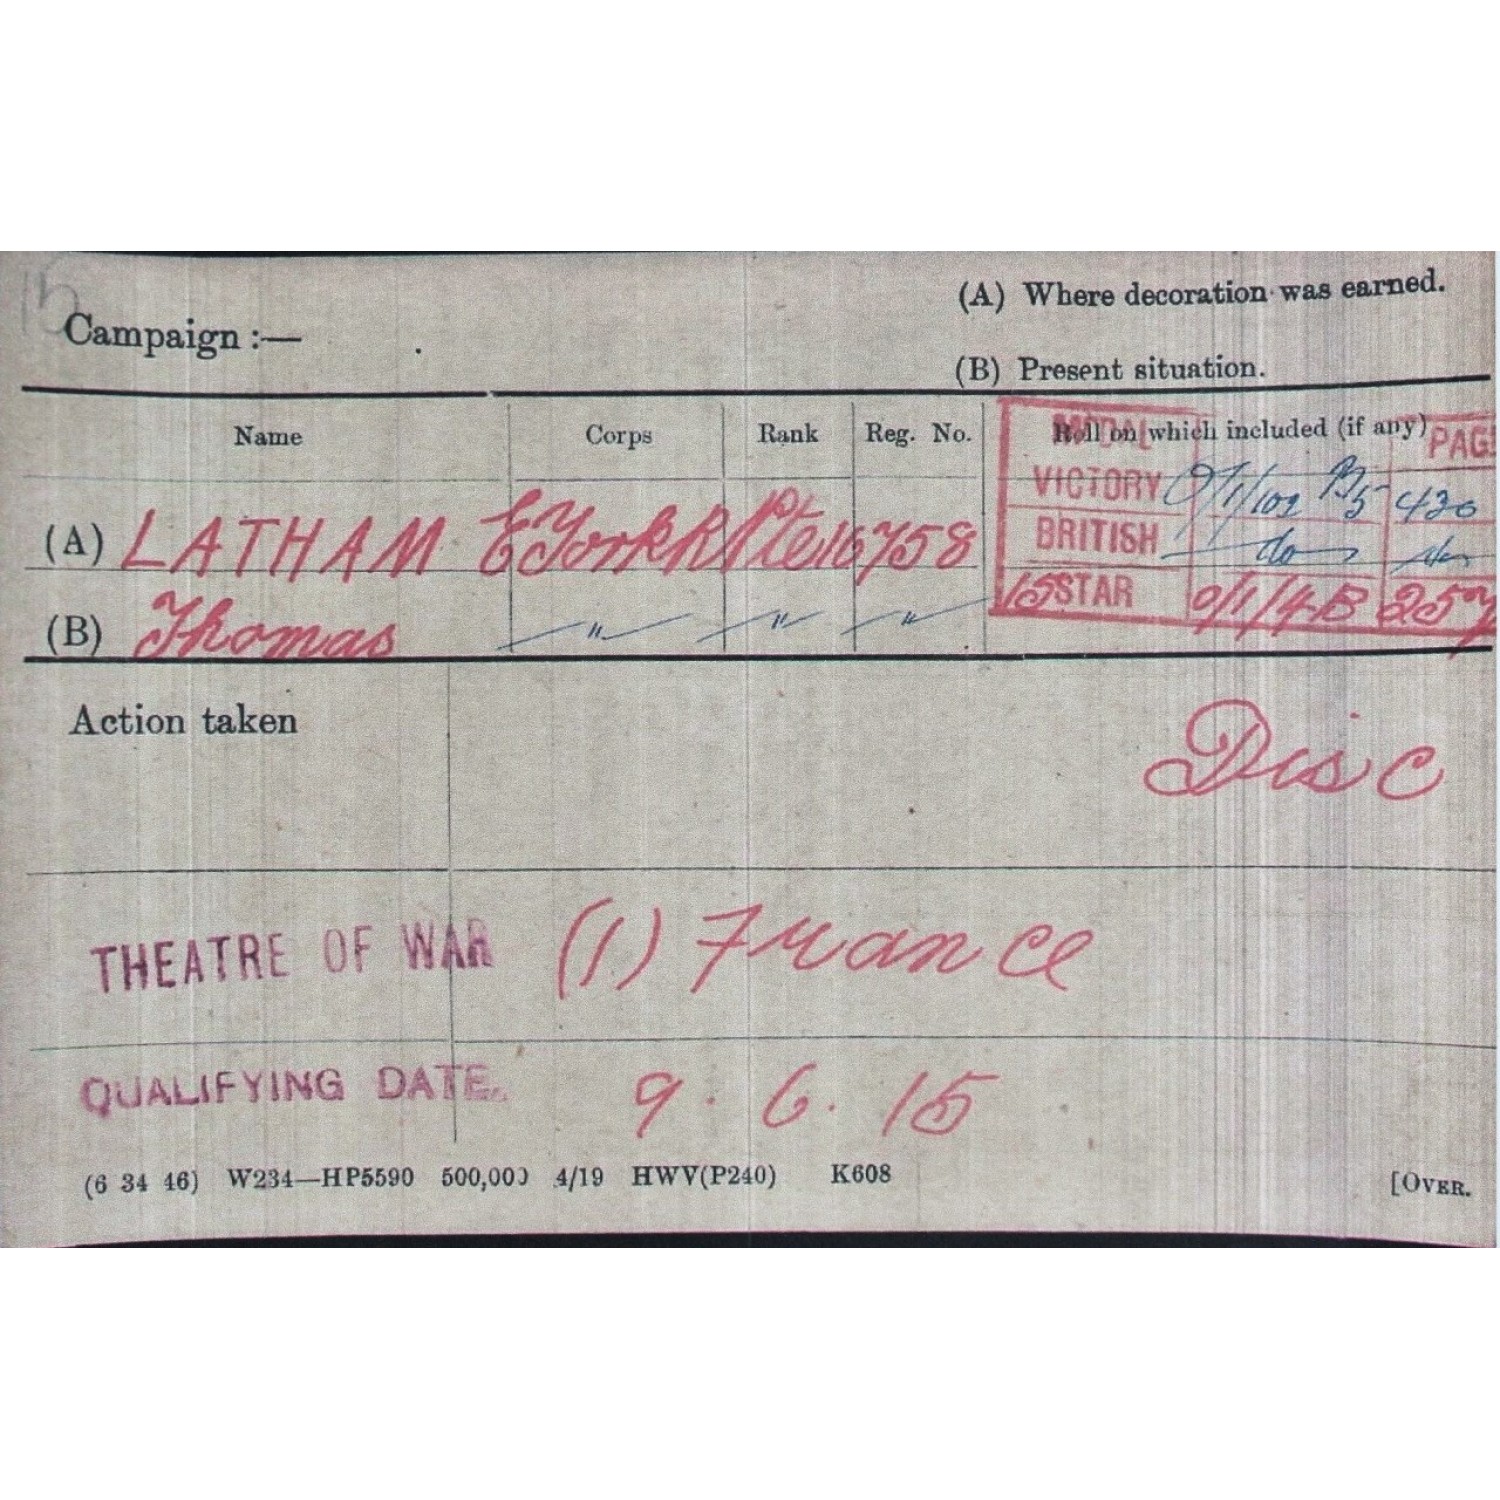 15
(A) Where decoration was earned.
Campaign :—
(B) Present situation.
Name Corps Rank Reg. No. Roll on which included (if any)
MEDAL PAGE
VICTORY O/1/102 B5 430
(A) LATHAM E York R Pte 16758
BRITISH do do
15 STAR O/1/4B 257
(B) Thomas " " "
Action taken
Disc
THEATRE OF WAR (1) France
QUALIFYING DATE. 9. 6. 15
(6 34 46) W234—HP5590 500,000 4/19 HWV(P240) K608 [OVER.